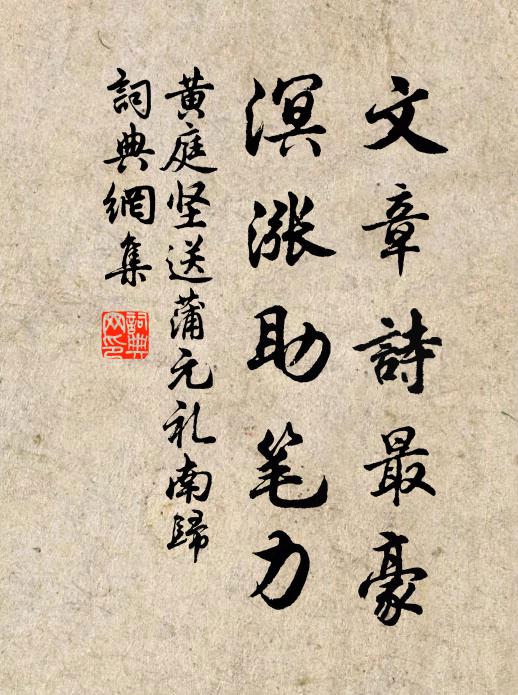 文章詩最豪
溟漲助笔力
黄庭坚送蒲元礼南歸
詞典網集
詞典網印